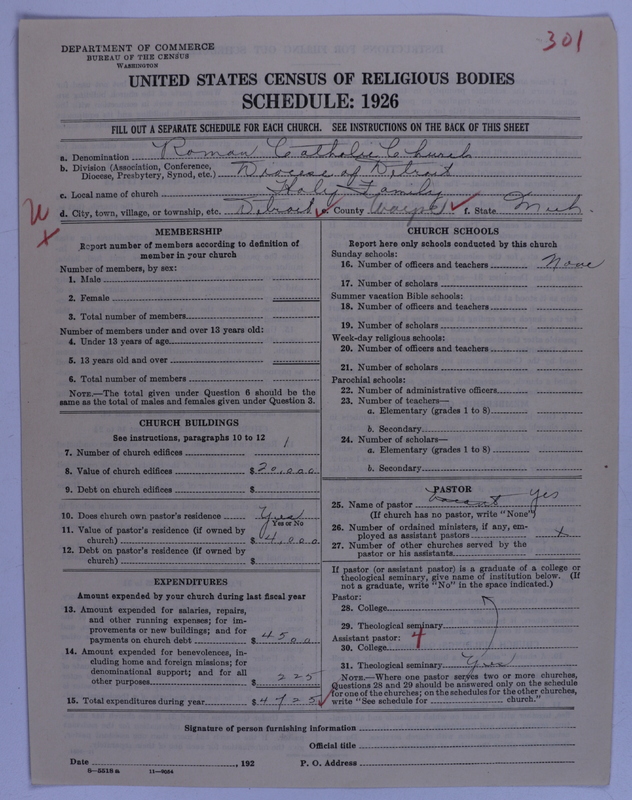 301
DEPARTMENT OF COMMERCE
BUREAU OF THE CENSUS
WASHINGTON
UNITED STATES CENSUS OF RELIGIOUS BODIES
SCHEDULE: 1926
FILL OUT A SEPARATE SCHEDULE FOR EACH CHURCH. SEE INSTRUCTIONS ON THE BACK OF THIS SHEET
a. Denomination Roman Catholic Church
b. Division (Association, Conference, Diocese, Presbytery, Synod, etc.) Diocese of Detroit
c. Local name of church Holy Family
d. City, town, village, or township, etc. Detroit ✓ e. County Wayne ✓ f. State Mich.
MEMBERSHIP
Report number of members according to definition of
member in your church
Number of members, by sex:
1. Male
2. Female
3. Total number of members
Number of members under and over 13 years old:
4. Under 13 years of age
5. 13 years old and over
6. Total number of members
NOTE.—The total given under Question 6 should be the
same as the total of males and females given under Question 3.
CHURCH BUILDINGS
See instructions, paragraphs 10 to 12
7. Number of church edifices 1
8. Value of church edifices $20,000
9. Debt on church edifices $
10. Does church own pastor's residence Yes
Yes or No
11. Value of pastor's residence (if owned by
church) $4,000
12. Debt on pastor's residence (if owned by
church) $
EXPENDITURES
Amount expended by your church during last fiscal year
13. Amount expended for salaries, repairs,
and other running expenses; for im-
provements or new buildings; and for
payments on church debt $4500
14. Amount expended for benevolences, in-
cluding home and foreign missions; for
denominational support; and for all
other purposes $225
15. Total expenditures during year $4725 ✓
CHURCH SCHOOLS
Report here only schools conducted by this church
Sunday schools:
16. Number of officers and teachers None
17. Number of scholars
Summer vacation Bible schools:
18. Number of officers and teachers
19. Number of scholars
Week-day religious schools:
20. Number of officers and teachers
21. Number of scholars
Parochial schools:
22. Number of administrative officers
23. Number of teachers—
a. Elementary (grades 1 to 8)
b. Secondary
24. Number of scholars—
a. Elementary (grades 1 to 8)
b. Secondary
PASTOR
25. Name of pastor Yes
(If church has no pastor, write "None")
26. Number of ordained ministers, if any, em-
ployed as assistant pastors x
27. Number of other churches served by the
pastor or his assistants
If pastor (or assistant pastor) is a graduate of a college or
theological seminary, give name of institution below. (If
not a graduate, write "No" in the space indicated.)
Pastor:
28. College
29. Theological seminary
Assistant pastor: 4
30. College
31. Theological seminary Yes
NOTE.—Where one pastor serves two or more churches,
Questions 28 and 29 should be answered only on the schedule
for one of the churches; on the schedules for the other churches,
write "See schedule for church."
Signature of person furnishing information
Official title
Date , 192 P. O. Address
8—5518a 11—9054